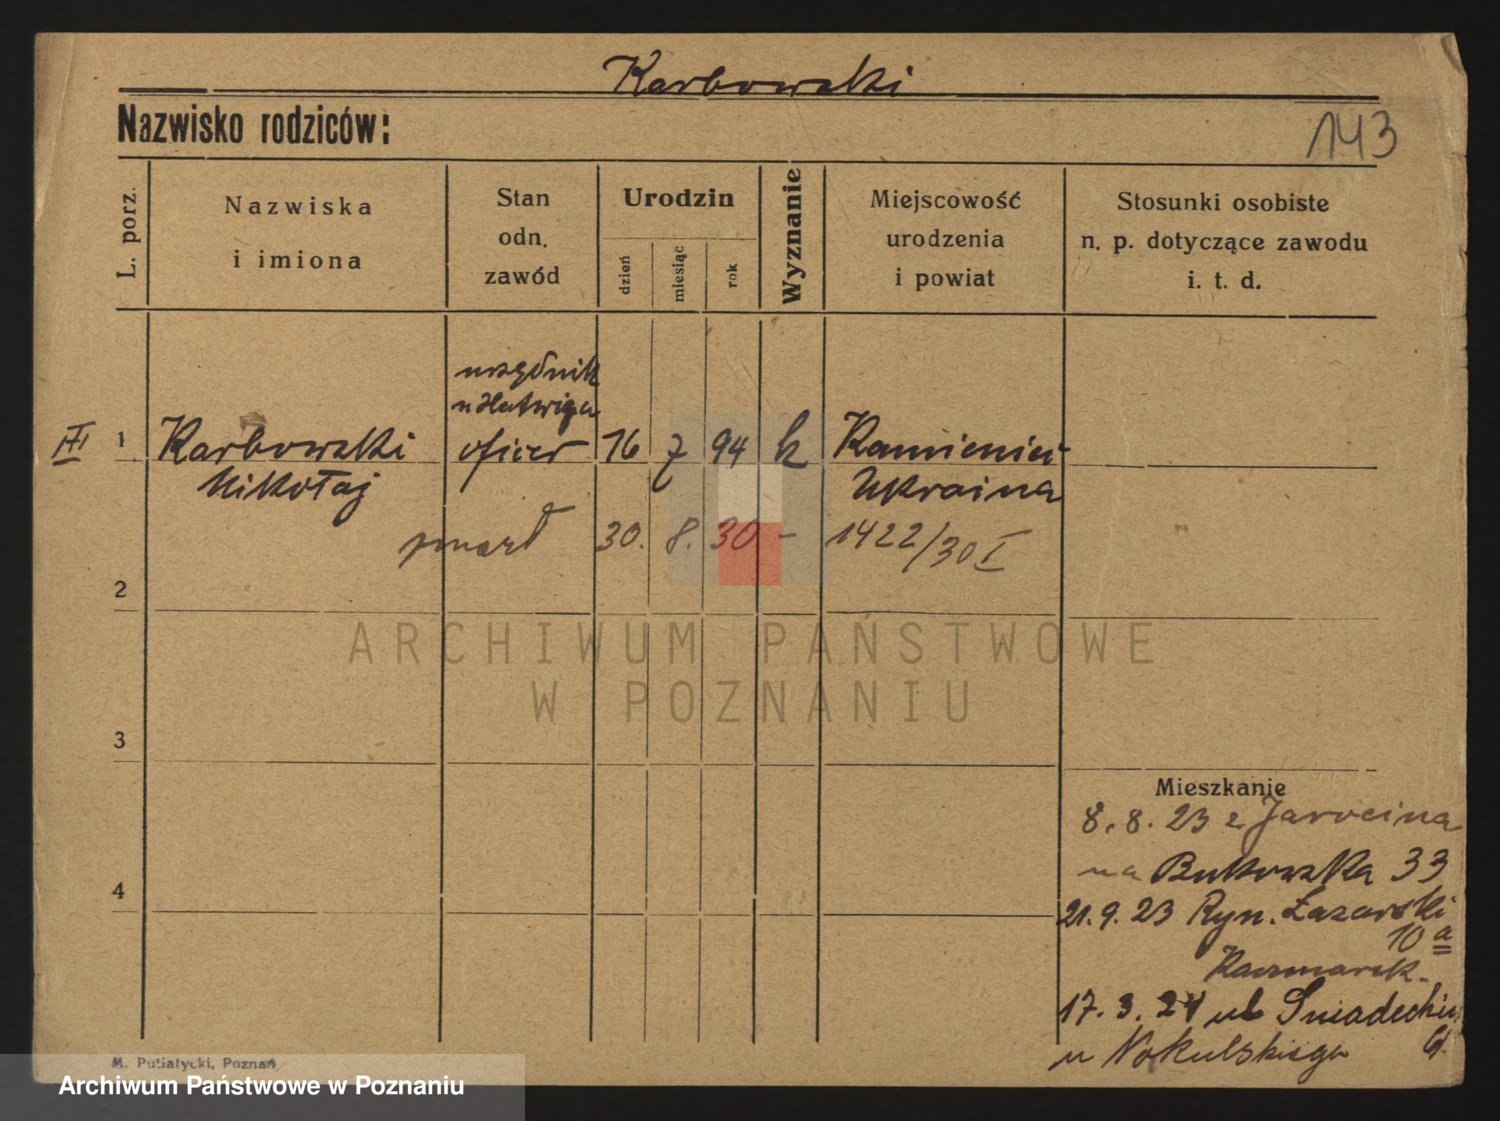 Karbowski
Nazwisko rodziców:
143
L. porz.
Nazwiska
i imiona
Stan
odn.
zawód
Urodzin
dzień
miesiąc
rok
Wyznanie
Miejscowość
urodzenia
i powiat
Stosunki osobiste
n. p. dotyczące zawodu
i. t. d.
urzędnik
u Hartwiga
III 1 Karbowski oficer 16 7 94 k Kamieniec
Mikołaj Ukraina
zmarł 30. 8. 30 - 1422/30 I
2
ARCHIWUM PAŃSTWOWE
W POZNANIU
3
Mieszkanie
8. 8. 23 z Jarocina
na Bukowska 33
4
21. 9. 23 Ryn. Łazarski
10 a
Kaczmarek
17. 3. 24 ul Śniadeckich
u
M. Putiatycki, Poznań
Archiwum Państwowe w Poznaniu